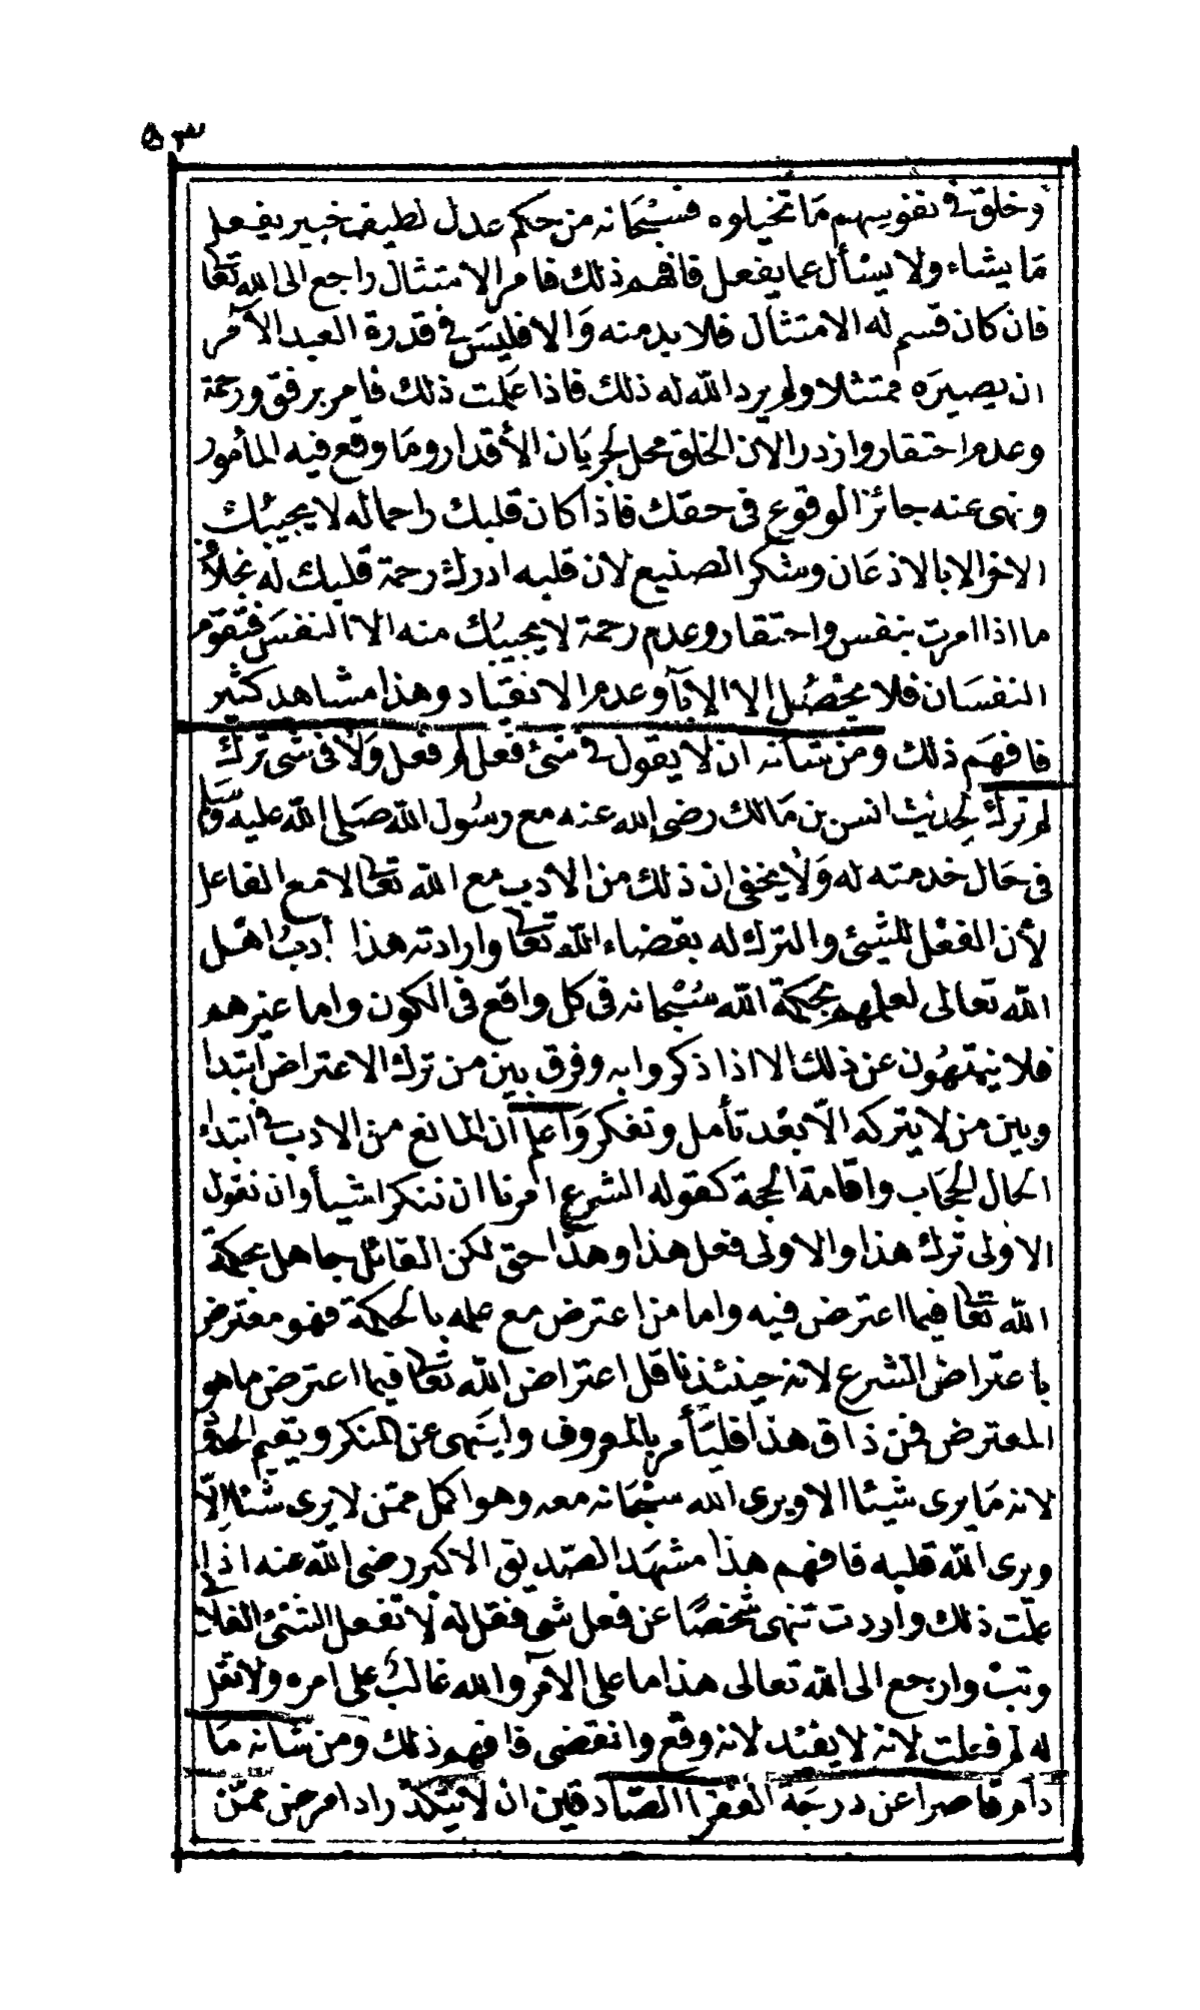 ٥٣
وخلق في نفوسهم مَا تخيلوه فسبْحَانه من حكم عدل لطيف خبير يفعل
مَا يشاء ولا يسْأل عما يفعل فافهم ذلك فامر الامتثال راجع الى الله تعَا
فان كان قسم له الامتثال فلا بد منه وَالا فليسَ في قدرة العبد الآمر
ان يصيرَه ممتثلا ولم يرد الله له ذلك فاذا عَلمت ذلك فامر برفق ورحمة
وعدم احتقار وازدرا لان الخلق محل لجريان الأقدار ومَا وقع فيه المأمور
ونهى عنه جائز الوقوع في حقك فاذا كان قلبك راحما له لا يجيبك
الاخر الا بالاذعَان وشكر الصنيع لان قلبه ادرك رحمة قلبك له بخلاف
ما اذا امرت بنفس واحتقار وعدم رحمة لا يجيبك منه الا النفسَ فتقوّم
النفسَان فلا يحْصُل إلا الإبآ وعدم الانقياد وهذا مشاهد كثير
فافهَم ذلك ومن شانه ان لا يقول في شئ فعل لم فعل وَلا في شى ترك
لم ترك لحديث انس بن مَالك رضى الله عنه مع رسُول الله صَلى الله عليه وسلم
في حَال خدمته له وَلا يخفى ان ذلك من الادب مع الله تعَا لا مع الفاعل
لأن الفعْل للشئ والترك له بقضاء الله تعَا وارادته هذا أدبُ اهْل
الله تعالى لعلمهم بحكمة الله سُبْحانه في كل واقع في الكون واما غيرهم
فلا ينتهُون عن ذلك الا اذا ذكروا به وفرق بين من ترك الاعتراض ابتدا
وبين من لا يتركه الّا بعْد تأمل وتفكر وَاعلم ان المانع من الادب في ابتداء
الحال الحجَاب واقامة الحجة كقوله الشرع امرنا ان ننكر اشيأ وان نقول
الاولى ترك هذا والاولى فعل هذا وهذا حق لكن القائل جاهل بحكمة
الله تعَا فيما اعترض فيه واما من اعترض مع علمه بالحكمة فهو معترض
باعتراض الشرع لانه حينئذ ناقل اعتراض الله تعَا فيما اعترض ما هو
المعترض فمن ذاق هذا فليَأمر بالمعروف وليَنهى عن المنكر ويقيم الحدود
لانه مَا يرى شيئا الا ويرى الله سبْحَانه معه وهو اكمل ممّن لا يرى شئا إلّا
ويرى الله قلبه فافهم هذا مشهَد الصّديق الاكبر رضى الله عنه اذا
علمت ذلك واردت تنهى شخصًا عن فعل شى فقل له لا تفعل الشئ الفلانى
وتبْ وارجع الى الله تعالى هذا ما على الآمر والله غالبُ على امره ولا تقل
له لم فعلت لانه لا يفيْد لانه وقع وانقضى فافهم ذلك ومن شانه مَا
دام قاصرا عن درجَة الفقرا الصّادقين ان لا يتكدّر اذا مرض ممّن